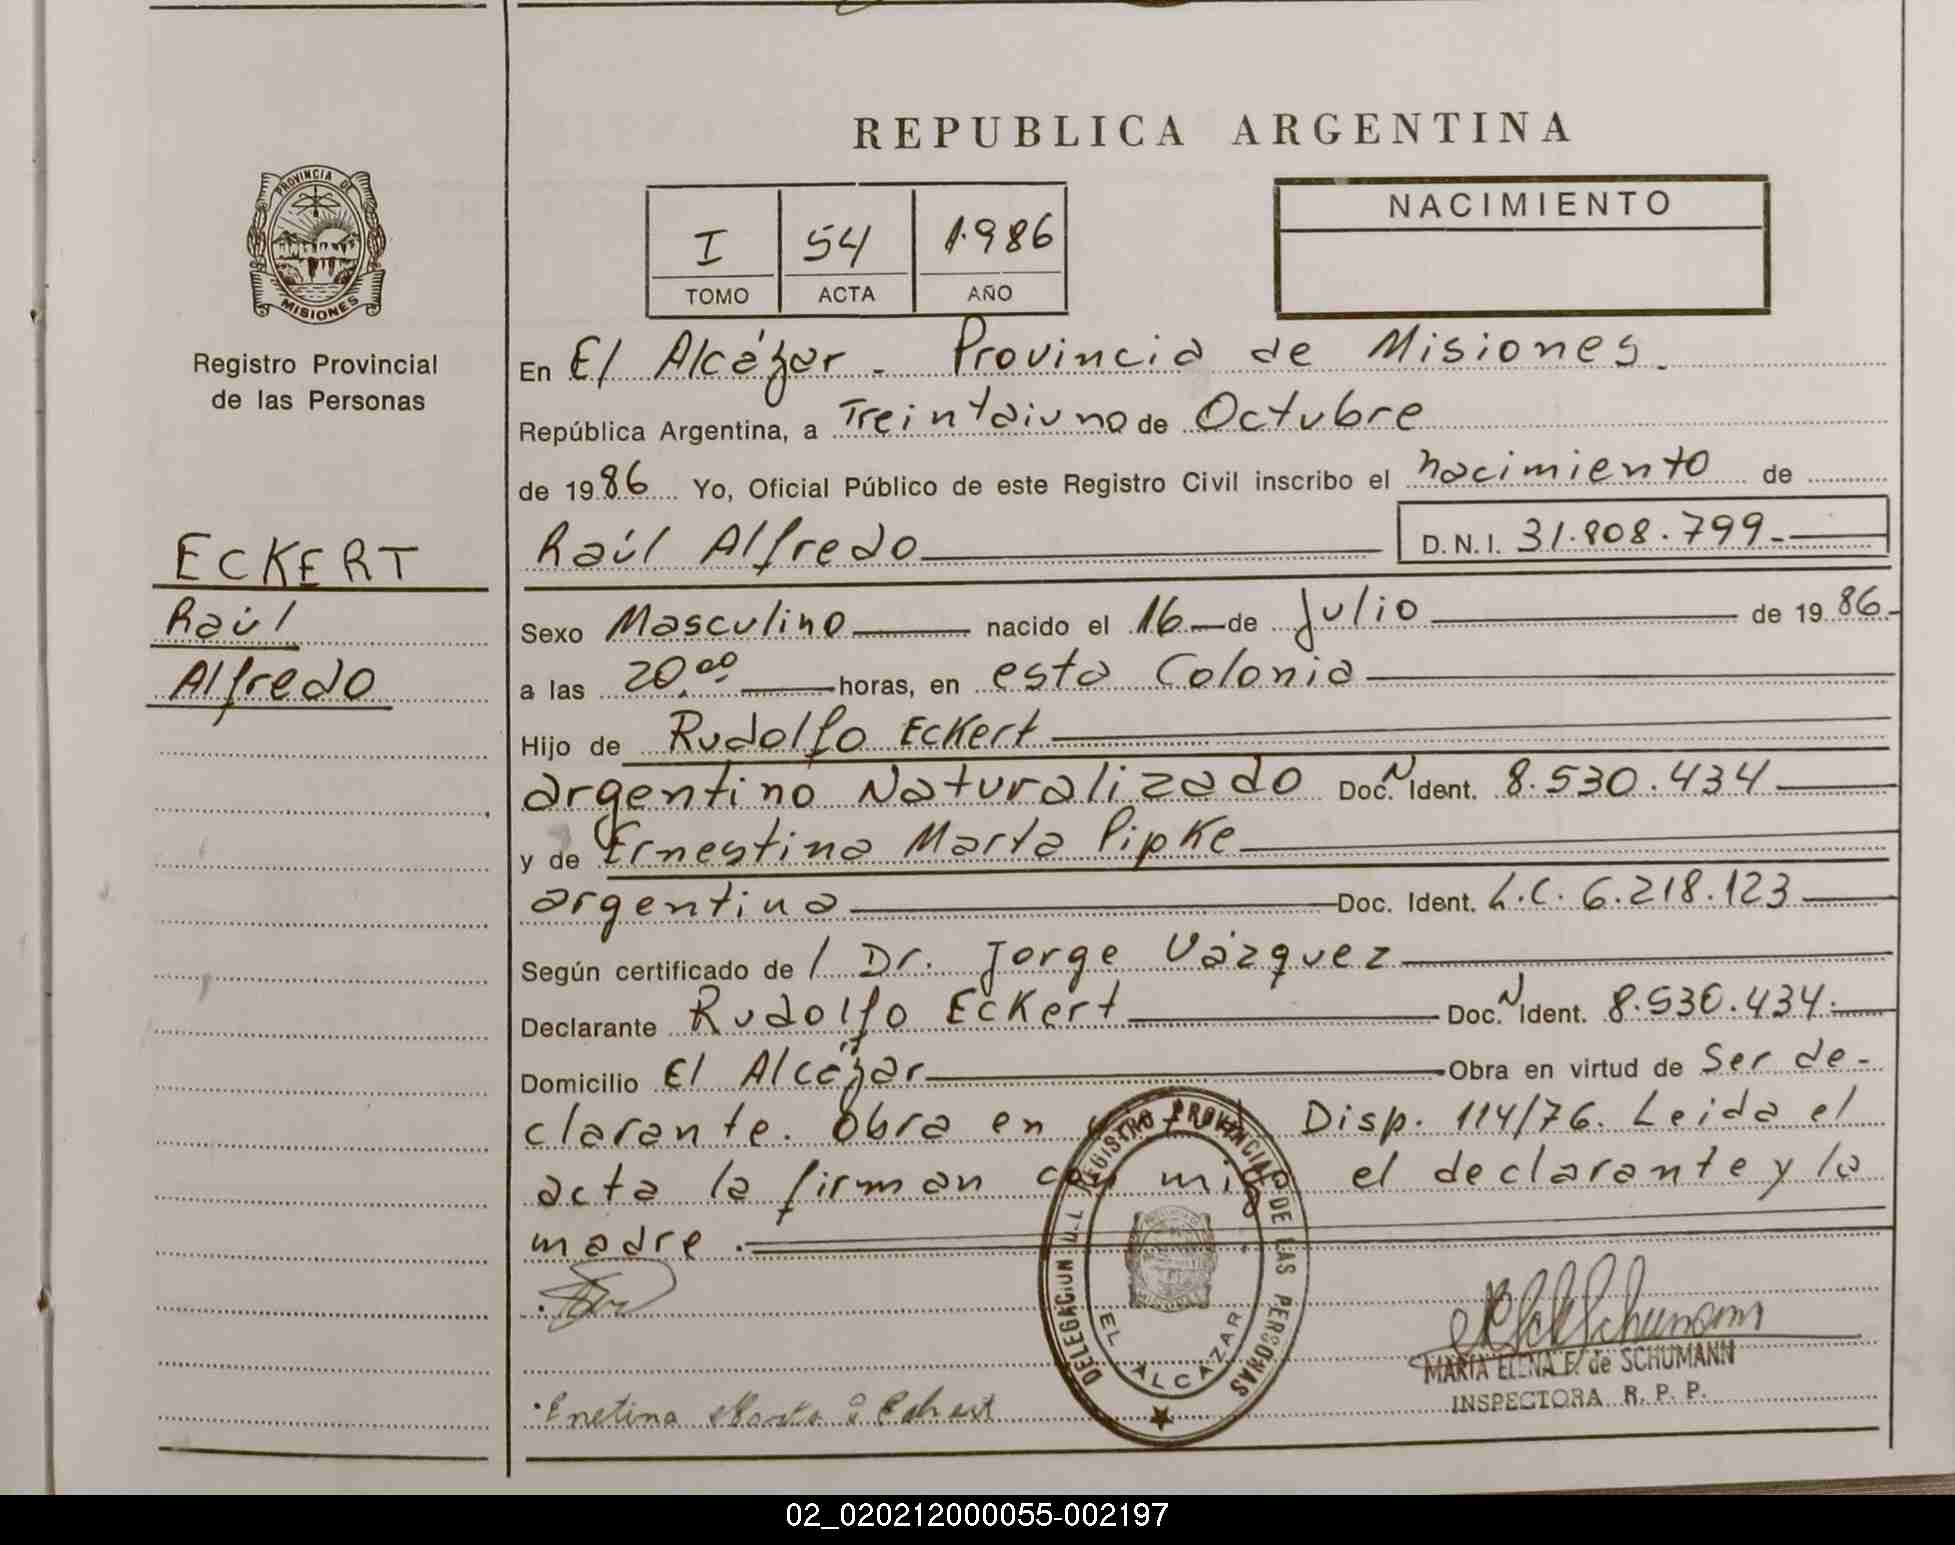 REPUBLICA ARGENTINA
PROVINCIA DE
MISIONES
Registro Provincial
de las Personas
I 54 1.986
TOMO ACTA AÑO
NACIMIENTO
ECKERT
Raúl
Alfredo
En El Alcázar - Provincia de Misiones.
República Argentina, a Treintaiuno de Octubre
de 1986 Yo, Oficial Público de este Registro Civil inscribo el nacimiento de
Raúl Alfredo D.N.I. 31.808.799-
Sexo Masculino nacido el 16 de Julio de 1986-
a las 20.00 horas, en esta Colonia
Hijo de Rudolfo Eckert
argentino Naturalizado Doc. N Ident. 8.530.434
y de Ernestina Marta Pipke
argentina Doc. Ident. L.C. 6.218.123
Según certificado de / Dr. Jorge Vázquez
Declarante Rudolfo Eckert Doc. N Ident. 8.530.434.
Domicilio El Alcázar Obra en virtud de Ser de-
clarante. Obra en Disp. 114/76. Leida el
acta la firman con migo el declarante y la
madre.
DELEGACION REGISTRO PROVINCIAL DE LAS PERSONAS
EL ALCAZAR
Schumann
MARIA ELENA F. de SCHUMANN
INSPECTORA R. P. P.
Enetina Marta
02_020212000055-002197